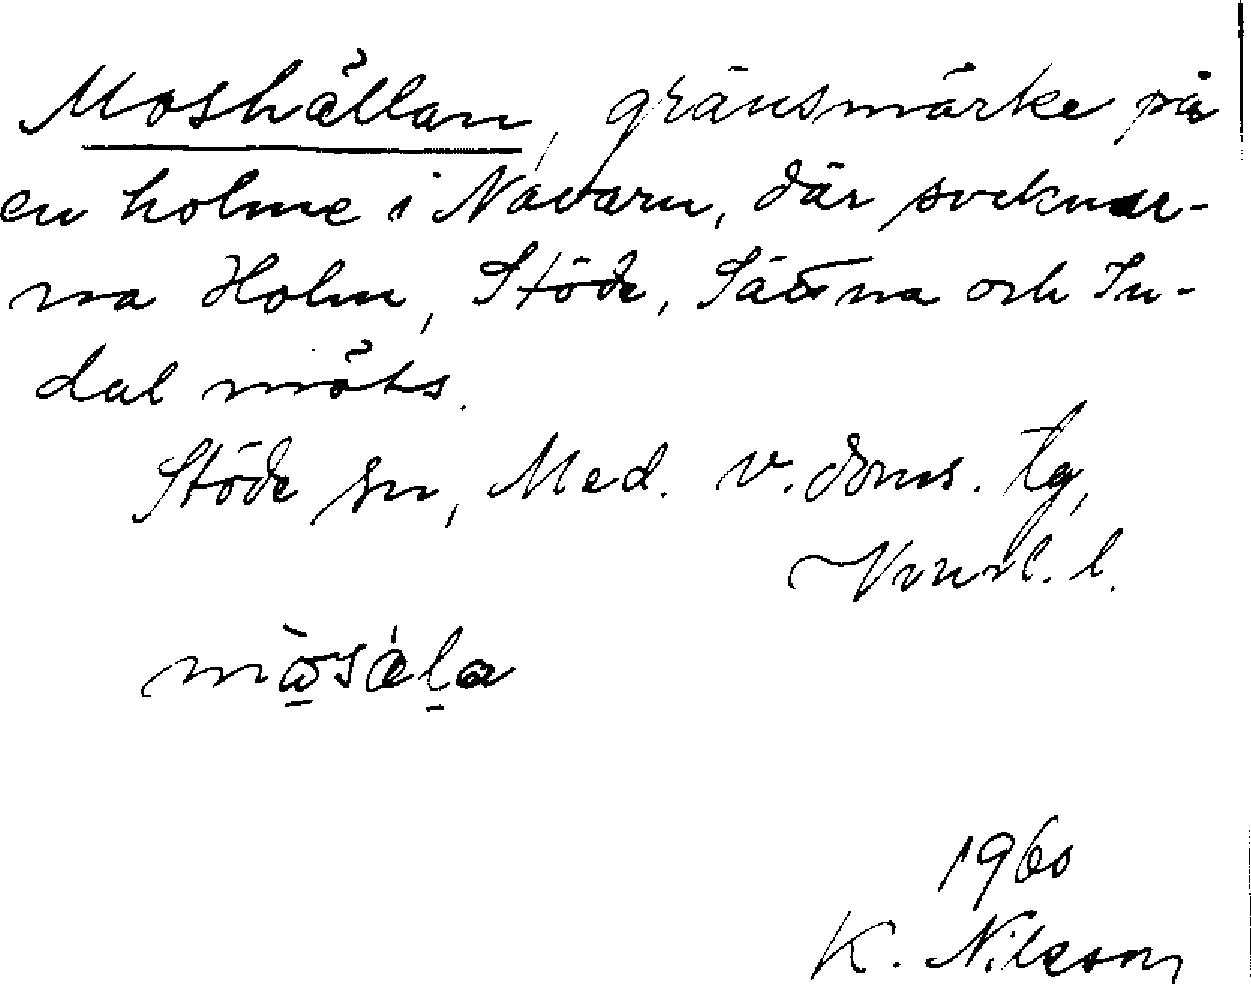 Moshällan, gränsmärke på
en holme i Navarn, där socknar-
na Holm, Stöde, Sättna och In-
dal möts.
Stöde sn, Med. v. doms. tg,
Vnrl. l.
1960
K. Nilsson